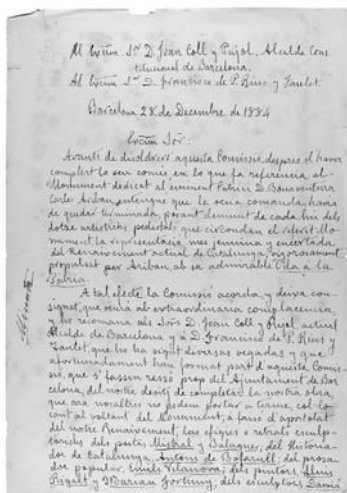 Al Excm Sor D. Joan Coll y Pujol, Alcalde Cons-
titucional de Barcelona.
Al Excm Sor D. Francisco de P. Rius y Taulet
Barcelona 28 de Decembre de 1884
Excm Sor:
Avants de disoldrers aquesta Comissió, despres d'haver
complert lo seu comés en lo que fa referencia al
Monument dedicat al eminent Patrici D. Bonaventura
Carles Aribau, entengué que la seva comanda, havia
de quedar terminada, posant demunt de cada hu dels
dotse artistichs pedestals que circundan el referit Mo-
nument la representació mes genuina y encertada
del Renaixement actual de Catalunya, vigorosament
propulsat per Aribau ab sa admirable Oda a la
Patria.
A tal efecte la Comissió acorda, y deixa con-
signat, que veuria ab extraordinaria complacencia,
y ho recomana als Sors D. Joan Coll y Pujol, actual
Alcalde de Barcelona y á D. Francisco de P. Rius y
Taulet, que ho ha sigut diversas vegadas y que
afortunadament han format part d'aquesta Comis-
sió, que s' fassen ressó prop del Ajuntament de Bar-
celona, del nostre desitj de completar la nostra obra,
que ara nosaltres no podem portar á terme, col·lo-
cant al voltant del Monument, á faisó d'apostolat
del nostre Renaixement, las efigies o retrats esculp-
tórichs dels poetas, Mistral y Balaguer, del Historia-
dor de Catalunya, Antoni de Bofarull, del prosa-
dor popular, Emili Vilanova, dels pintors, Lluis
Rigalt y Marian Fortuny, dels esculptors, Damiá